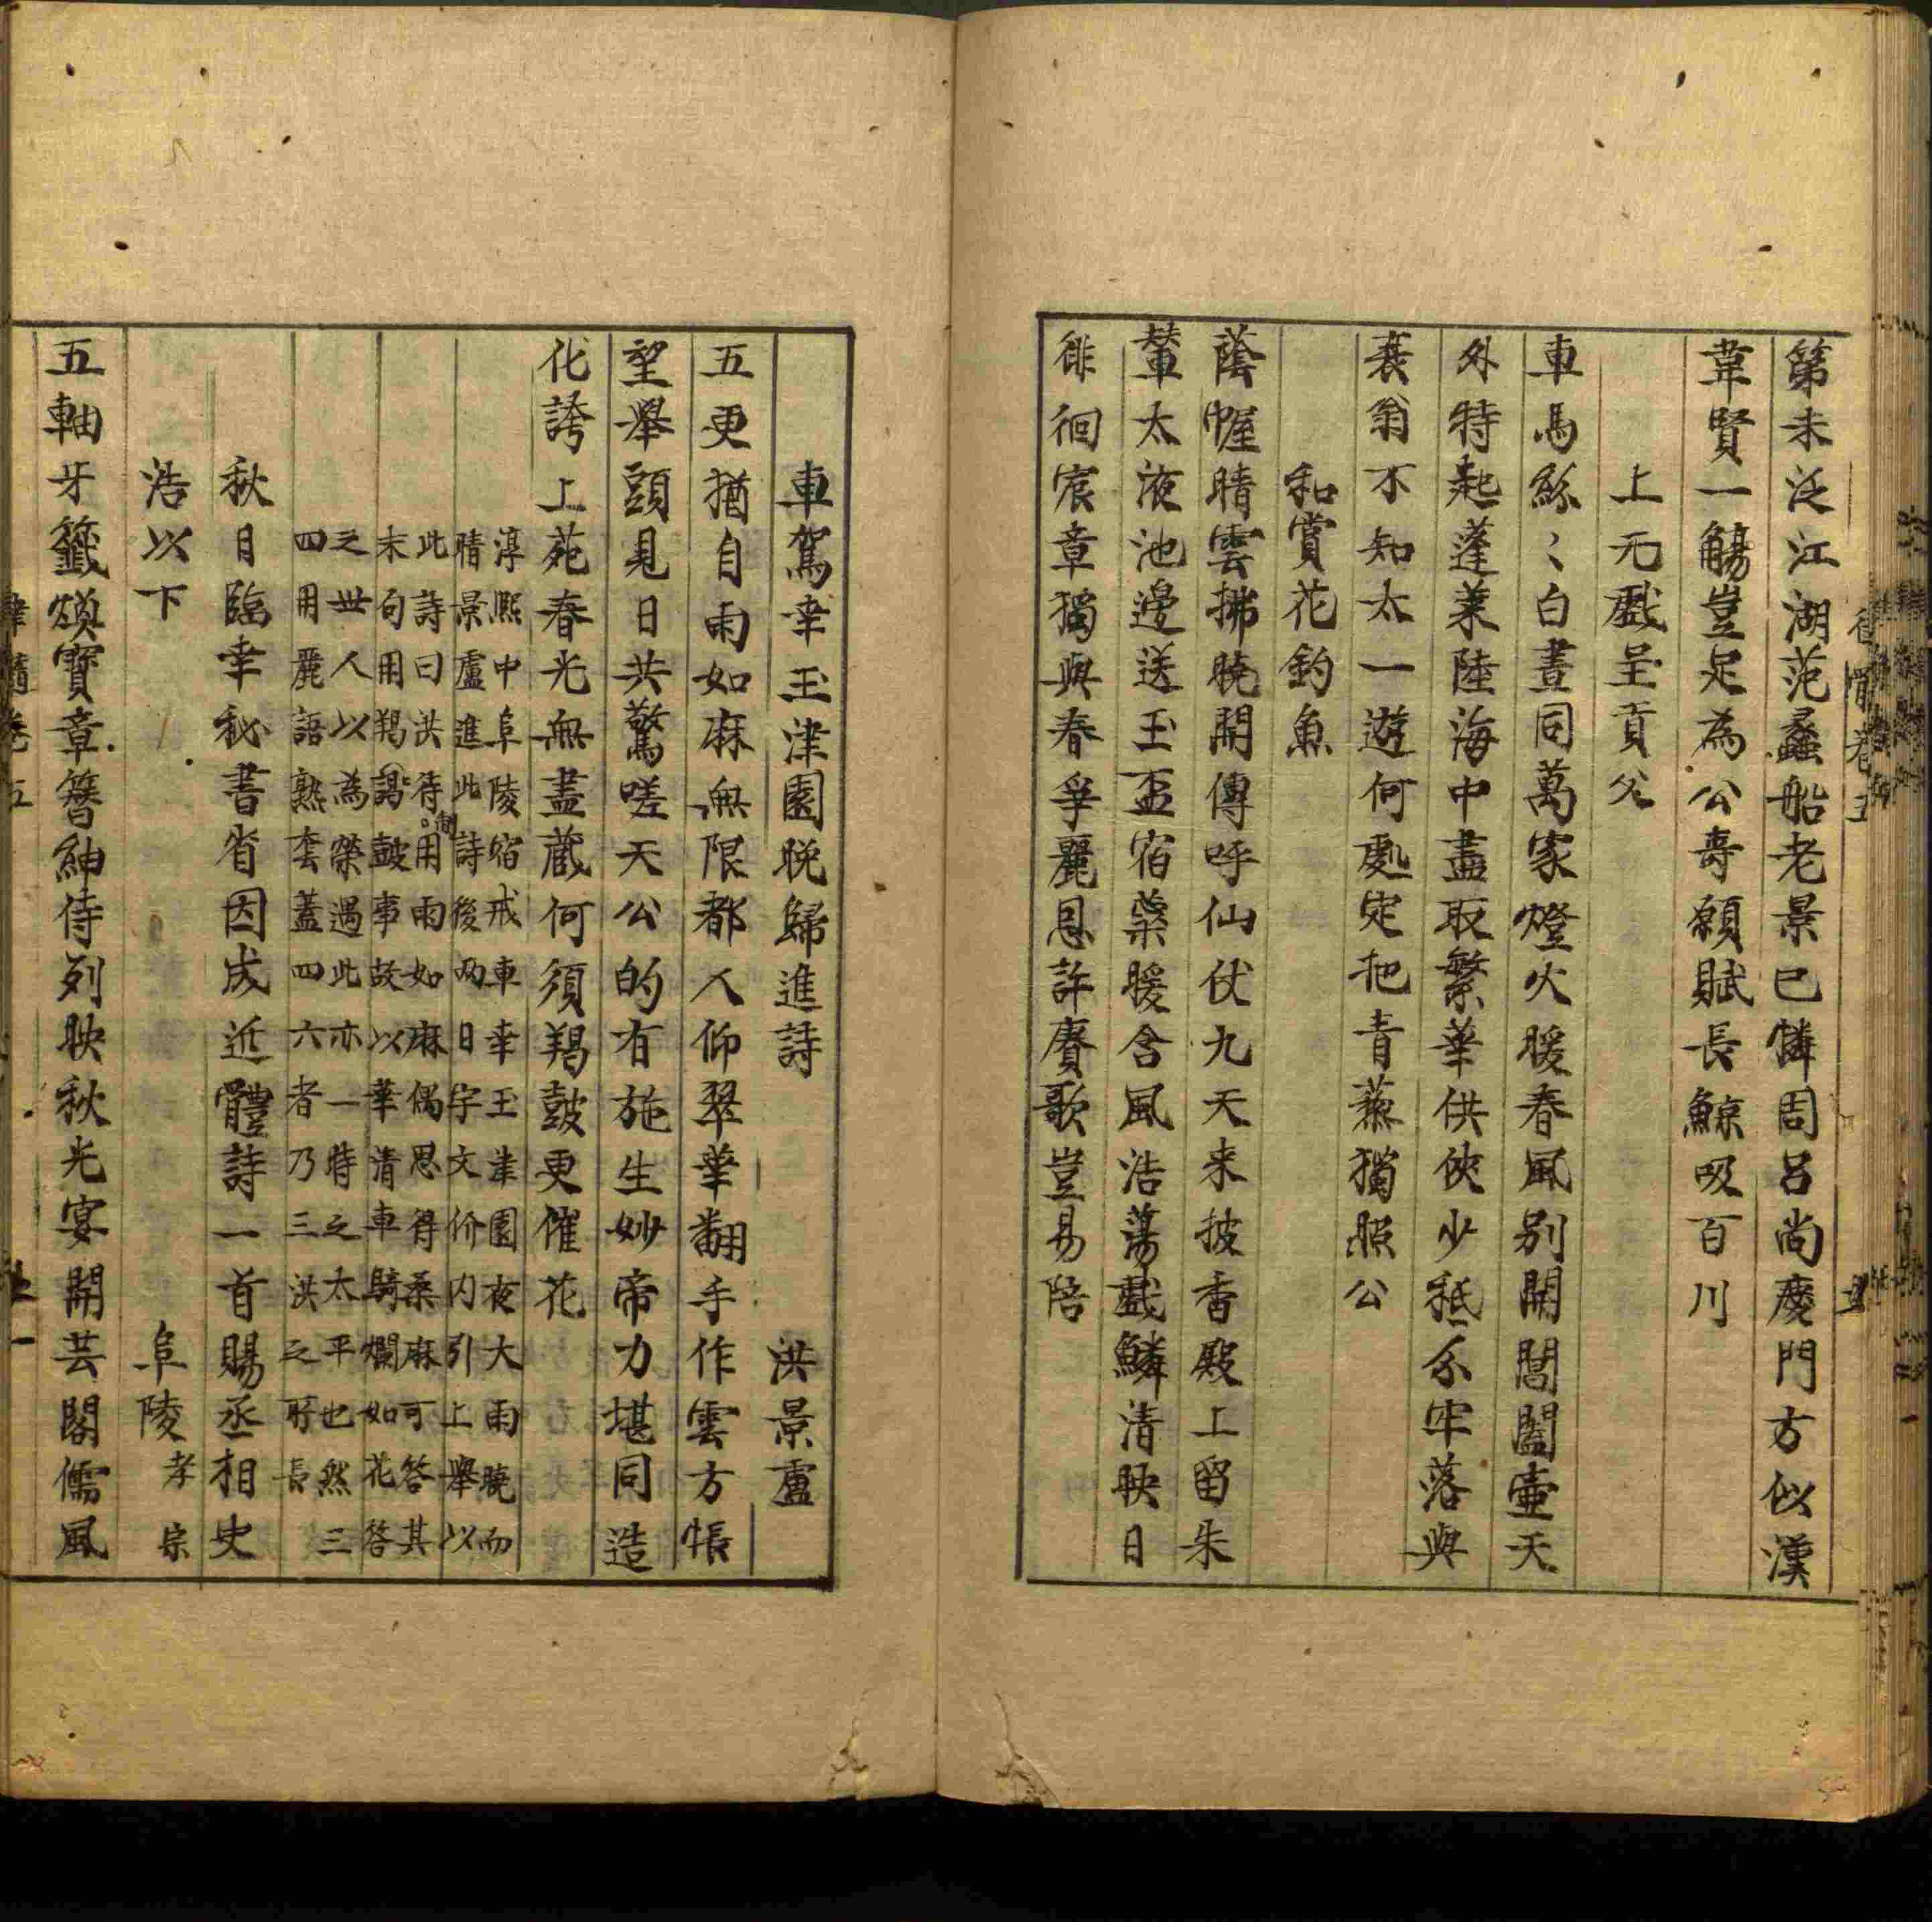 第未泛江湖范蠡船老景已憐周呂尚慶門方似漢
韋賢一觴豈足為公壽願賦長鯨吸百川
上元戲呈貢父
車馬紛〻白晝同萬家燈火暖春風别開閶闔壺天
外特起蓬萊陸海中盡取繁華供俠少秪分牢落與
衰翁不知太一遊何處定把青藜獨照公
和賞花釣魚
蔭幄晴雲拂曉開傳呼仙仗九天来披香殿上留朱
輦太液池邊送玉盃宿蘂暖含風浩蕩戲鱗清映日
徘徊宸章獨與春爭麗恩許賡歌豈易陪
車駕幸玉津園晚歸進詩 洪景盧
五更猶自雨如麻無限都人仰翠華翻手作雲方悵
望舉頭見日共驚嗟天公的有施生妙帝力堪同造
化誇上苑春光無盡藏何須羯鼓更催花
淳熈中阜陵宿戒車幸玉津園夜大雨曉而
晴景盧進此詩後两日宇文价内引上舉以
此詩曰洪待制用雨如麻偶思得桑麻可答其
末句用羯鼓事故以華清車騎爛如花答
之世人以為榮遇此亦一時之太平也然三
四用麗語熟套蓋四六者乃三洪之所長
秋日臨幸秘書省因成近體詩一首賜丞相史
浩以下 阜陵孝宗
五軸牙籤煥寶章簪紳侍列映秋光宴開芸閣儒風